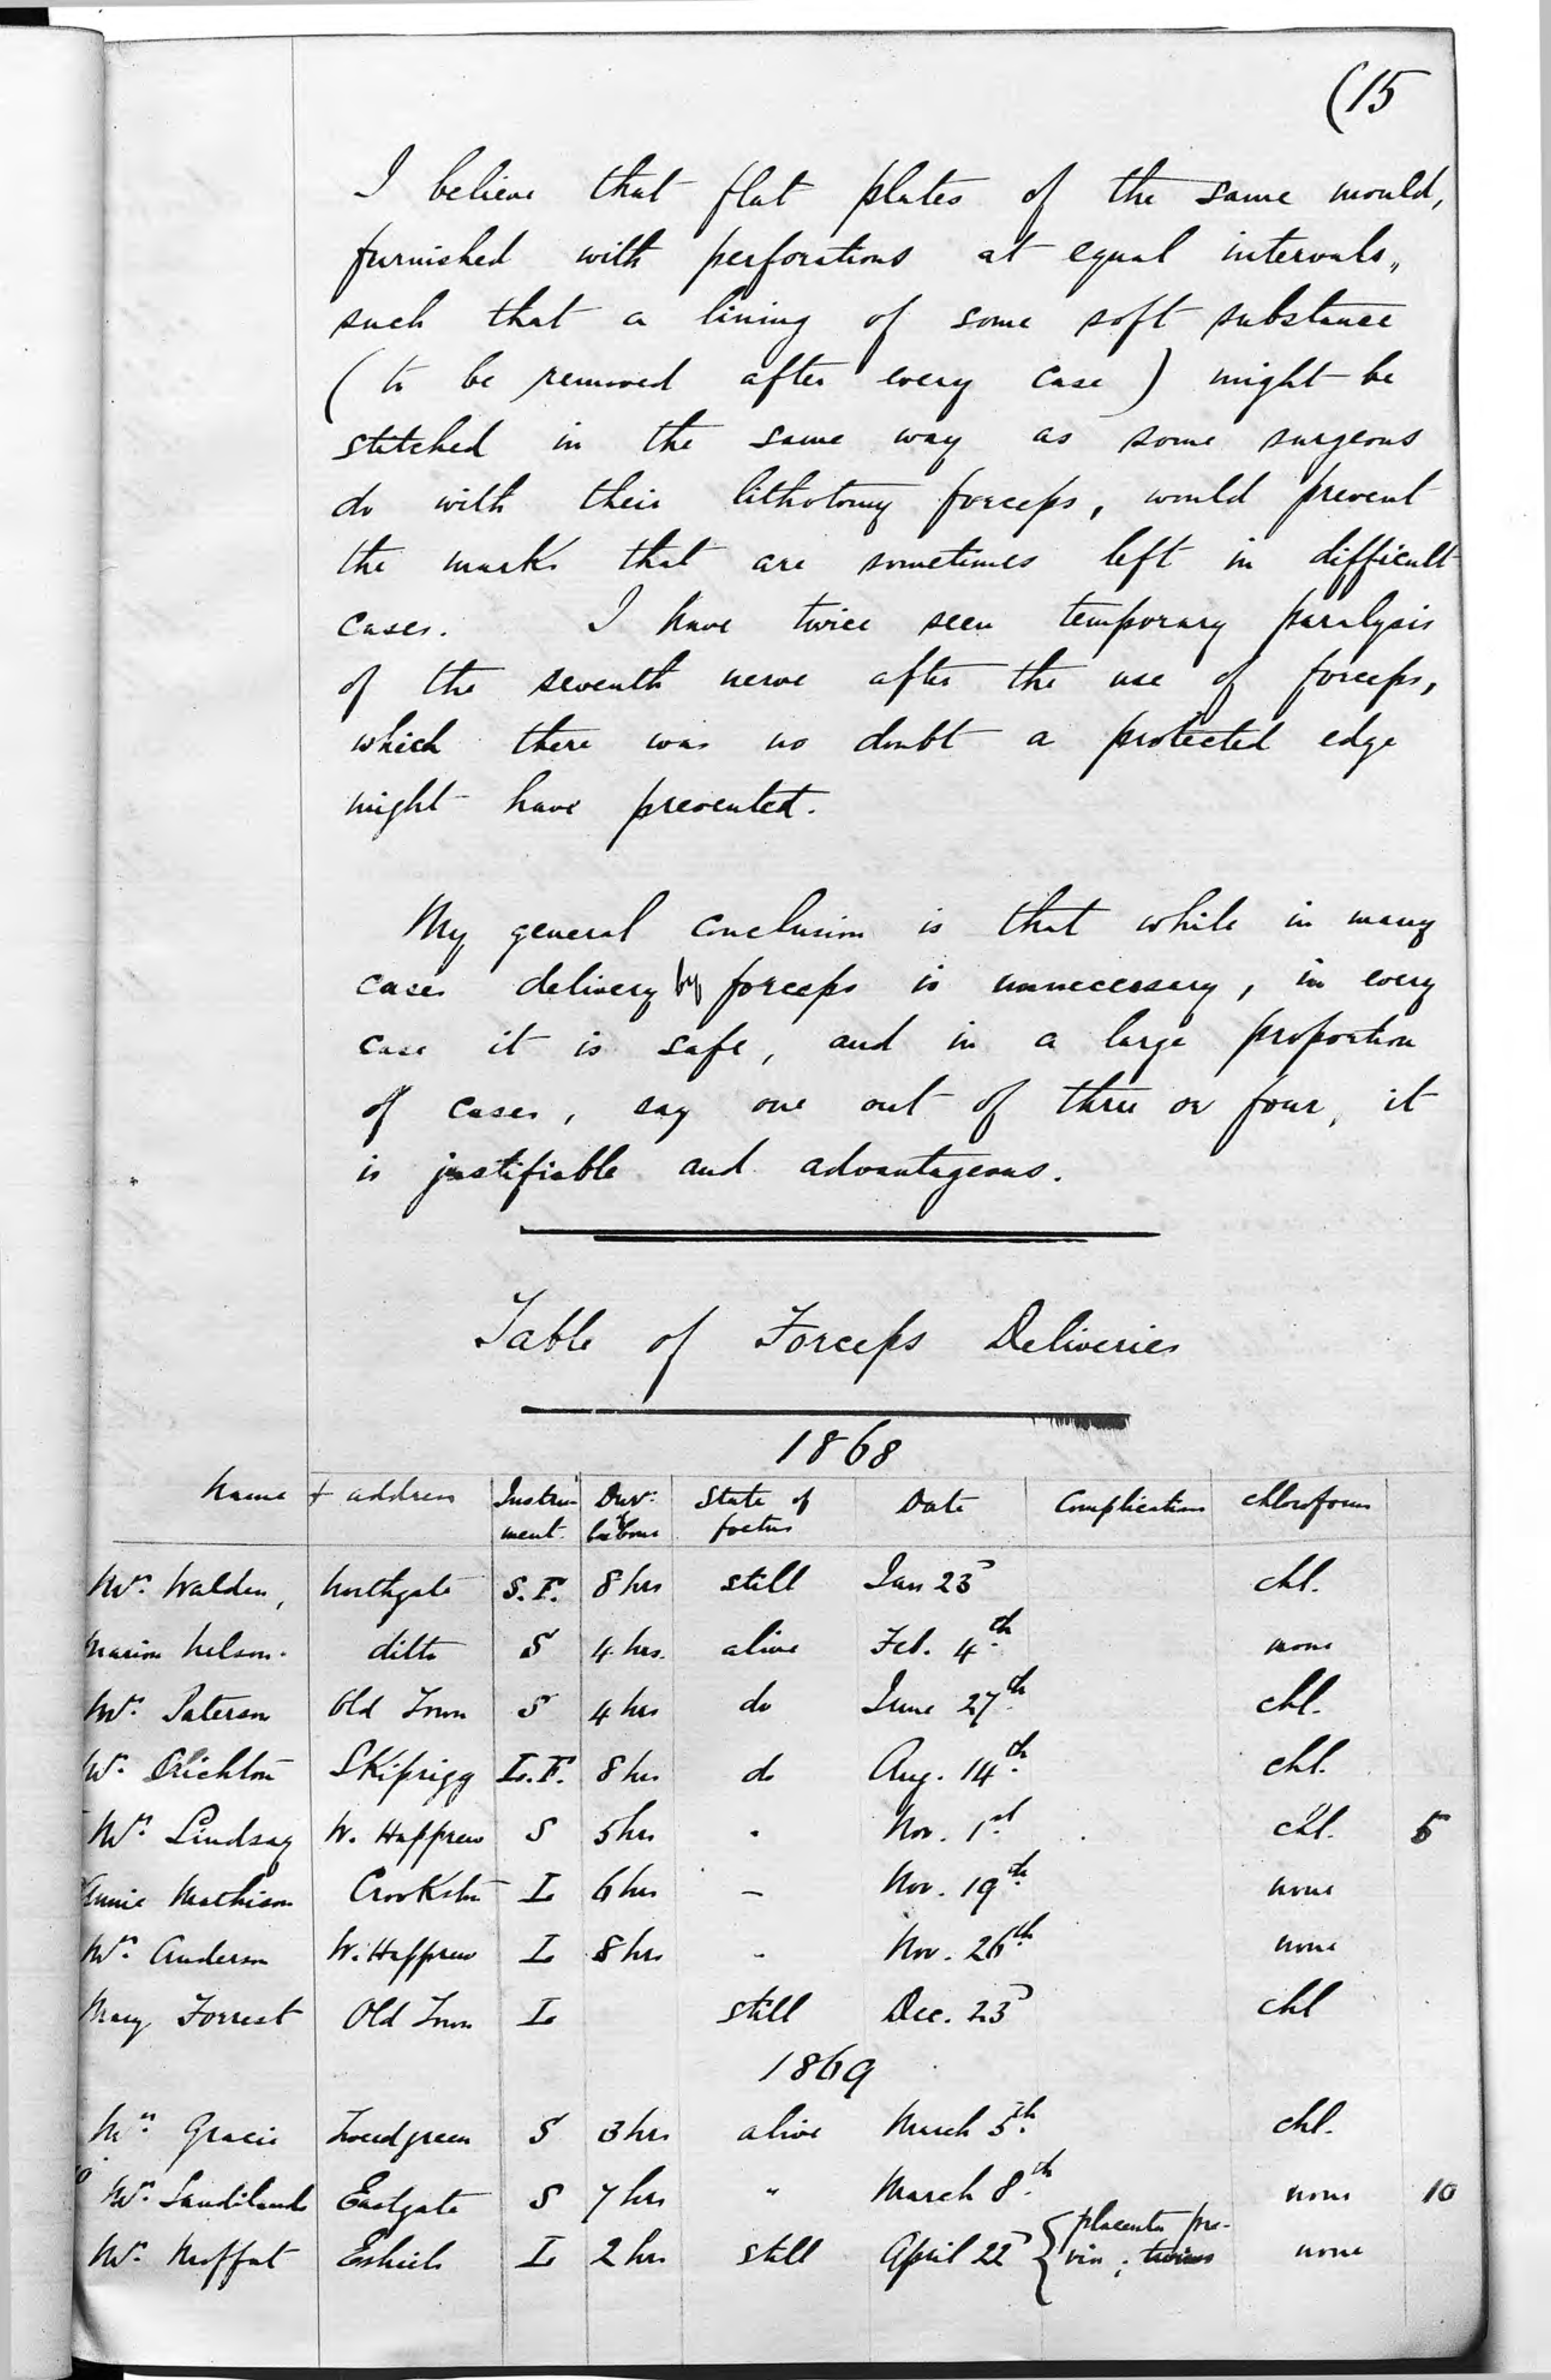 (15
I believe that flat plates of the same mould,
furnished with perforations at equal intervals,,
such that a lining of some soft substance
(to be removed after every case) might be
stitched in the same way as some surgeons
do with their lithotomy forceps, would prevent
the marks that are sometimes left in difficult
cases. I have twice seen temporary paralysis
of the seventh nerve after the use of forceps,
which there was no doubt a protected edge
might have prevented.
My general conclusion is that while in many
cases delivery by forceps is unnecessary, in every
case it is safe, and in a large proportion
of cases, say one out of three or four, it
is justifiable and advantageous.
Table of Forceps Deliveries
1868
Name + address Instru- Dur: State of Date Complications Chloroform
ment. of labour foetus
Mrs. Walden, Northgate S.F. 8 hrs still Jan 23d chl.
Marion Nelson. ditto S 4 hrs. alive Feb. 4th. none
Mrs. Paterson Old Town S 4 hrs do June 27th. chl.
Mrs. Crichton Skiprigg L.F. 8 hrs do Aug. 14th. chl.
Mrs. Lindsay W. Happrew S 5 hrs " Nov. 1st. chl. 5
Annie Mathison Crookston L 6 hrs – Nov. 19th. none
Mrs. Anderson W. Happrew L 8 hrs " Nov. 26th. none
Mary Forrest Old Town L still Dec. 23d chl
1869
Mrs. Gracie Tweedgreen S 3 hrs alive March 5th. chl.
Mrs. Sandilands Eastgate S 7 hrs " March 8th. none 10
Mrs. Moffat Eshiels L 2 hrs still April 22d { placenta pre-
via; twins none